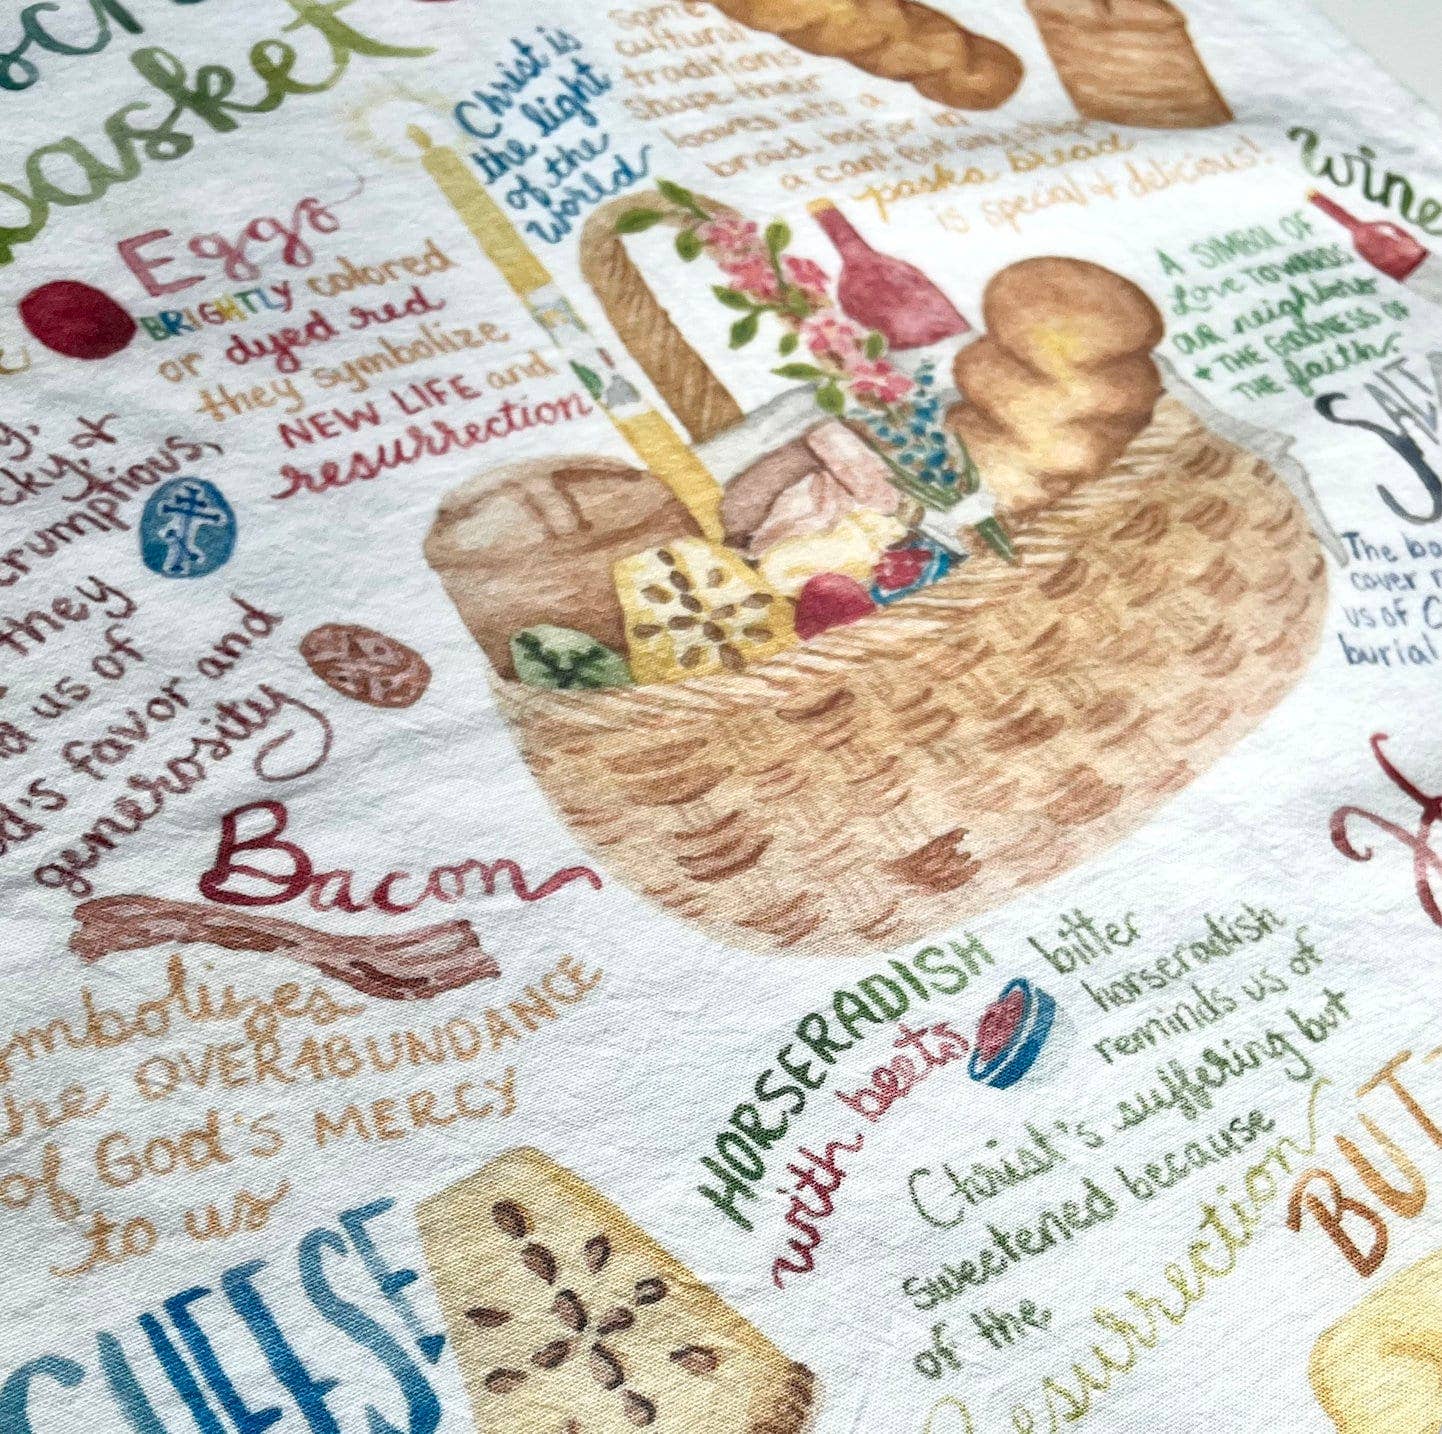 basket
Christ is
the light
of the
world
Some
cultural
traditions
shape their
loaves into a
braid, in a
a can! But any shape
paska bread
is special & delicious!
Wine
A SYMBOL OF
Love TOWARDS
OUR neighbors
+ THE GOODNESS OF
THE faith
SALT
The ba
cover r
us of C
burial
Eggs
BRIGHTLY colored
or dyed red
they symbolize
NEW LIFE and
resurrection
they
us of
favor and
generosity
Bacon
mbolizes
the OVERABUNDANCE
of God's MERCY
to us
CHEESE
HORSERADISH
with beets
bitter
horseradish
reminds us of
Christ's suffering but
sweetened because
of the
Resurrection
BUT